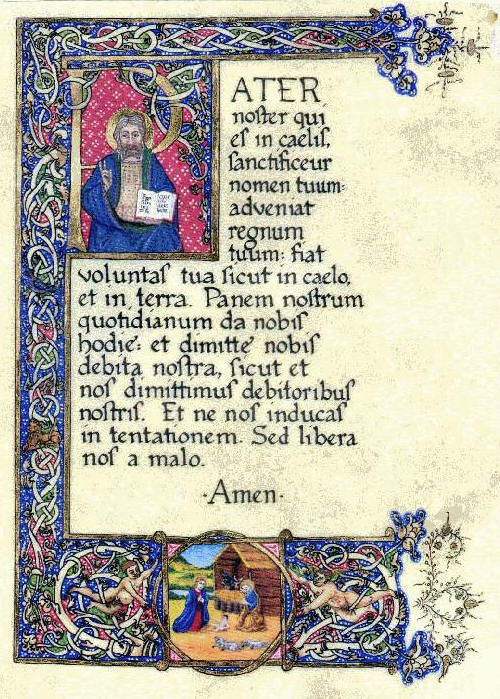 PATER
noster qui
es in caelis,
sanctificeur
nomen tuum:
adveniat
regnum
tuum: fiat
voluntas tua sicut in caelo,
et in terra. Panem nostrum
quotidianum da nobis
hodie: et dimitte nobis
debita nostra, sicut et
nos dimittimus debitoribus
nostris. Et ne nos inducas
in tentationem. Sed libera
nos a malo.
·Amen·